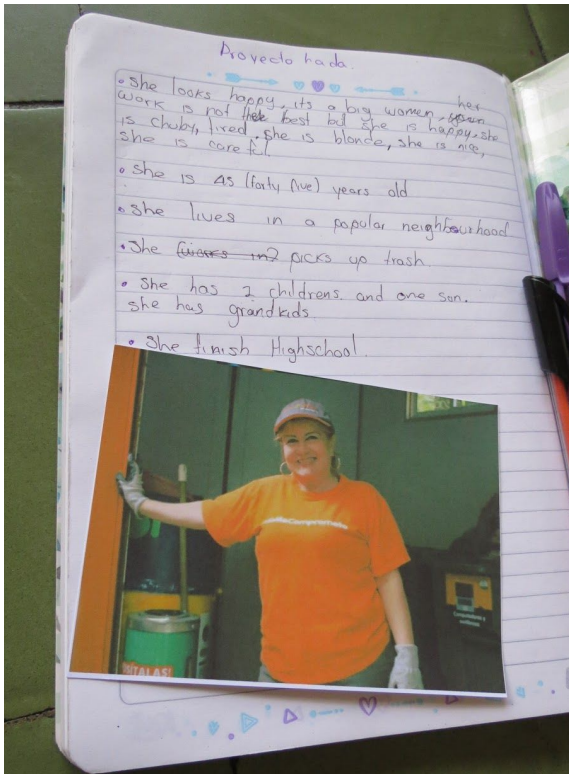 Proyecto hada.
• She looks happy, its a big women, her
work is not best but she is happy, she
is chuby, tired. She is blonde, she is nice,
she is careful.
• She is 45 (forty five) years old
• She lives in a popular neighbourhood
• She (works in?) picks up trash.
• She has 2 childrens and one son.
She has grandkids
• She finish Highschool.
ITALAS!